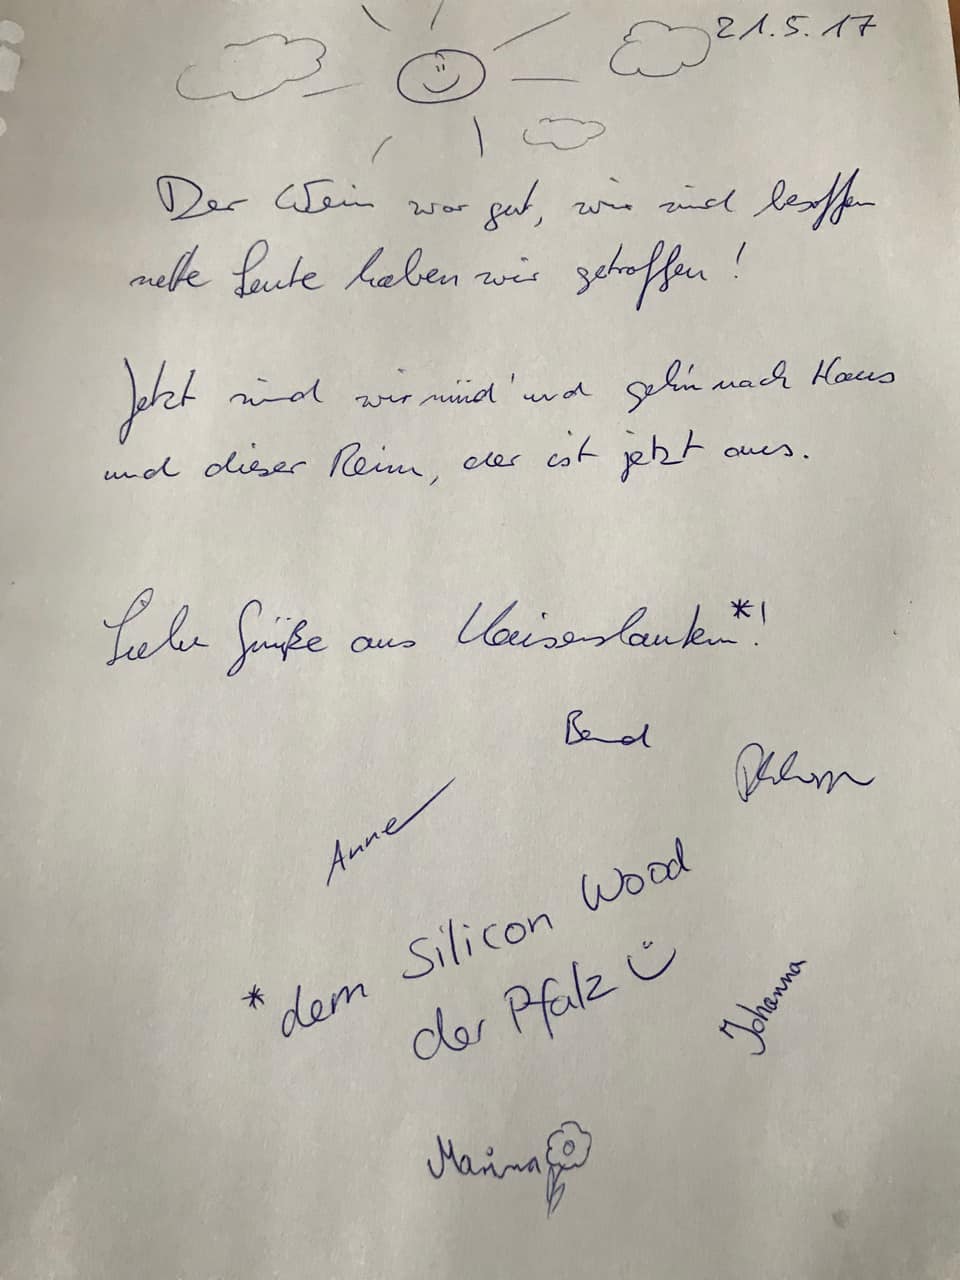 21.5.17
Der Wein war gut, wir sind besoffen
nette Leute haben wir getroffen!
Jetzt sind wir müd' und geh'n nach Haus
und dieser Reim, der ist jetzt aus.
Liebe Grüße aus Kaiserslautern*!
Bernd
Philipp
Anne
*dem Silicon Wood
der Pfalz
Johanna
Marina